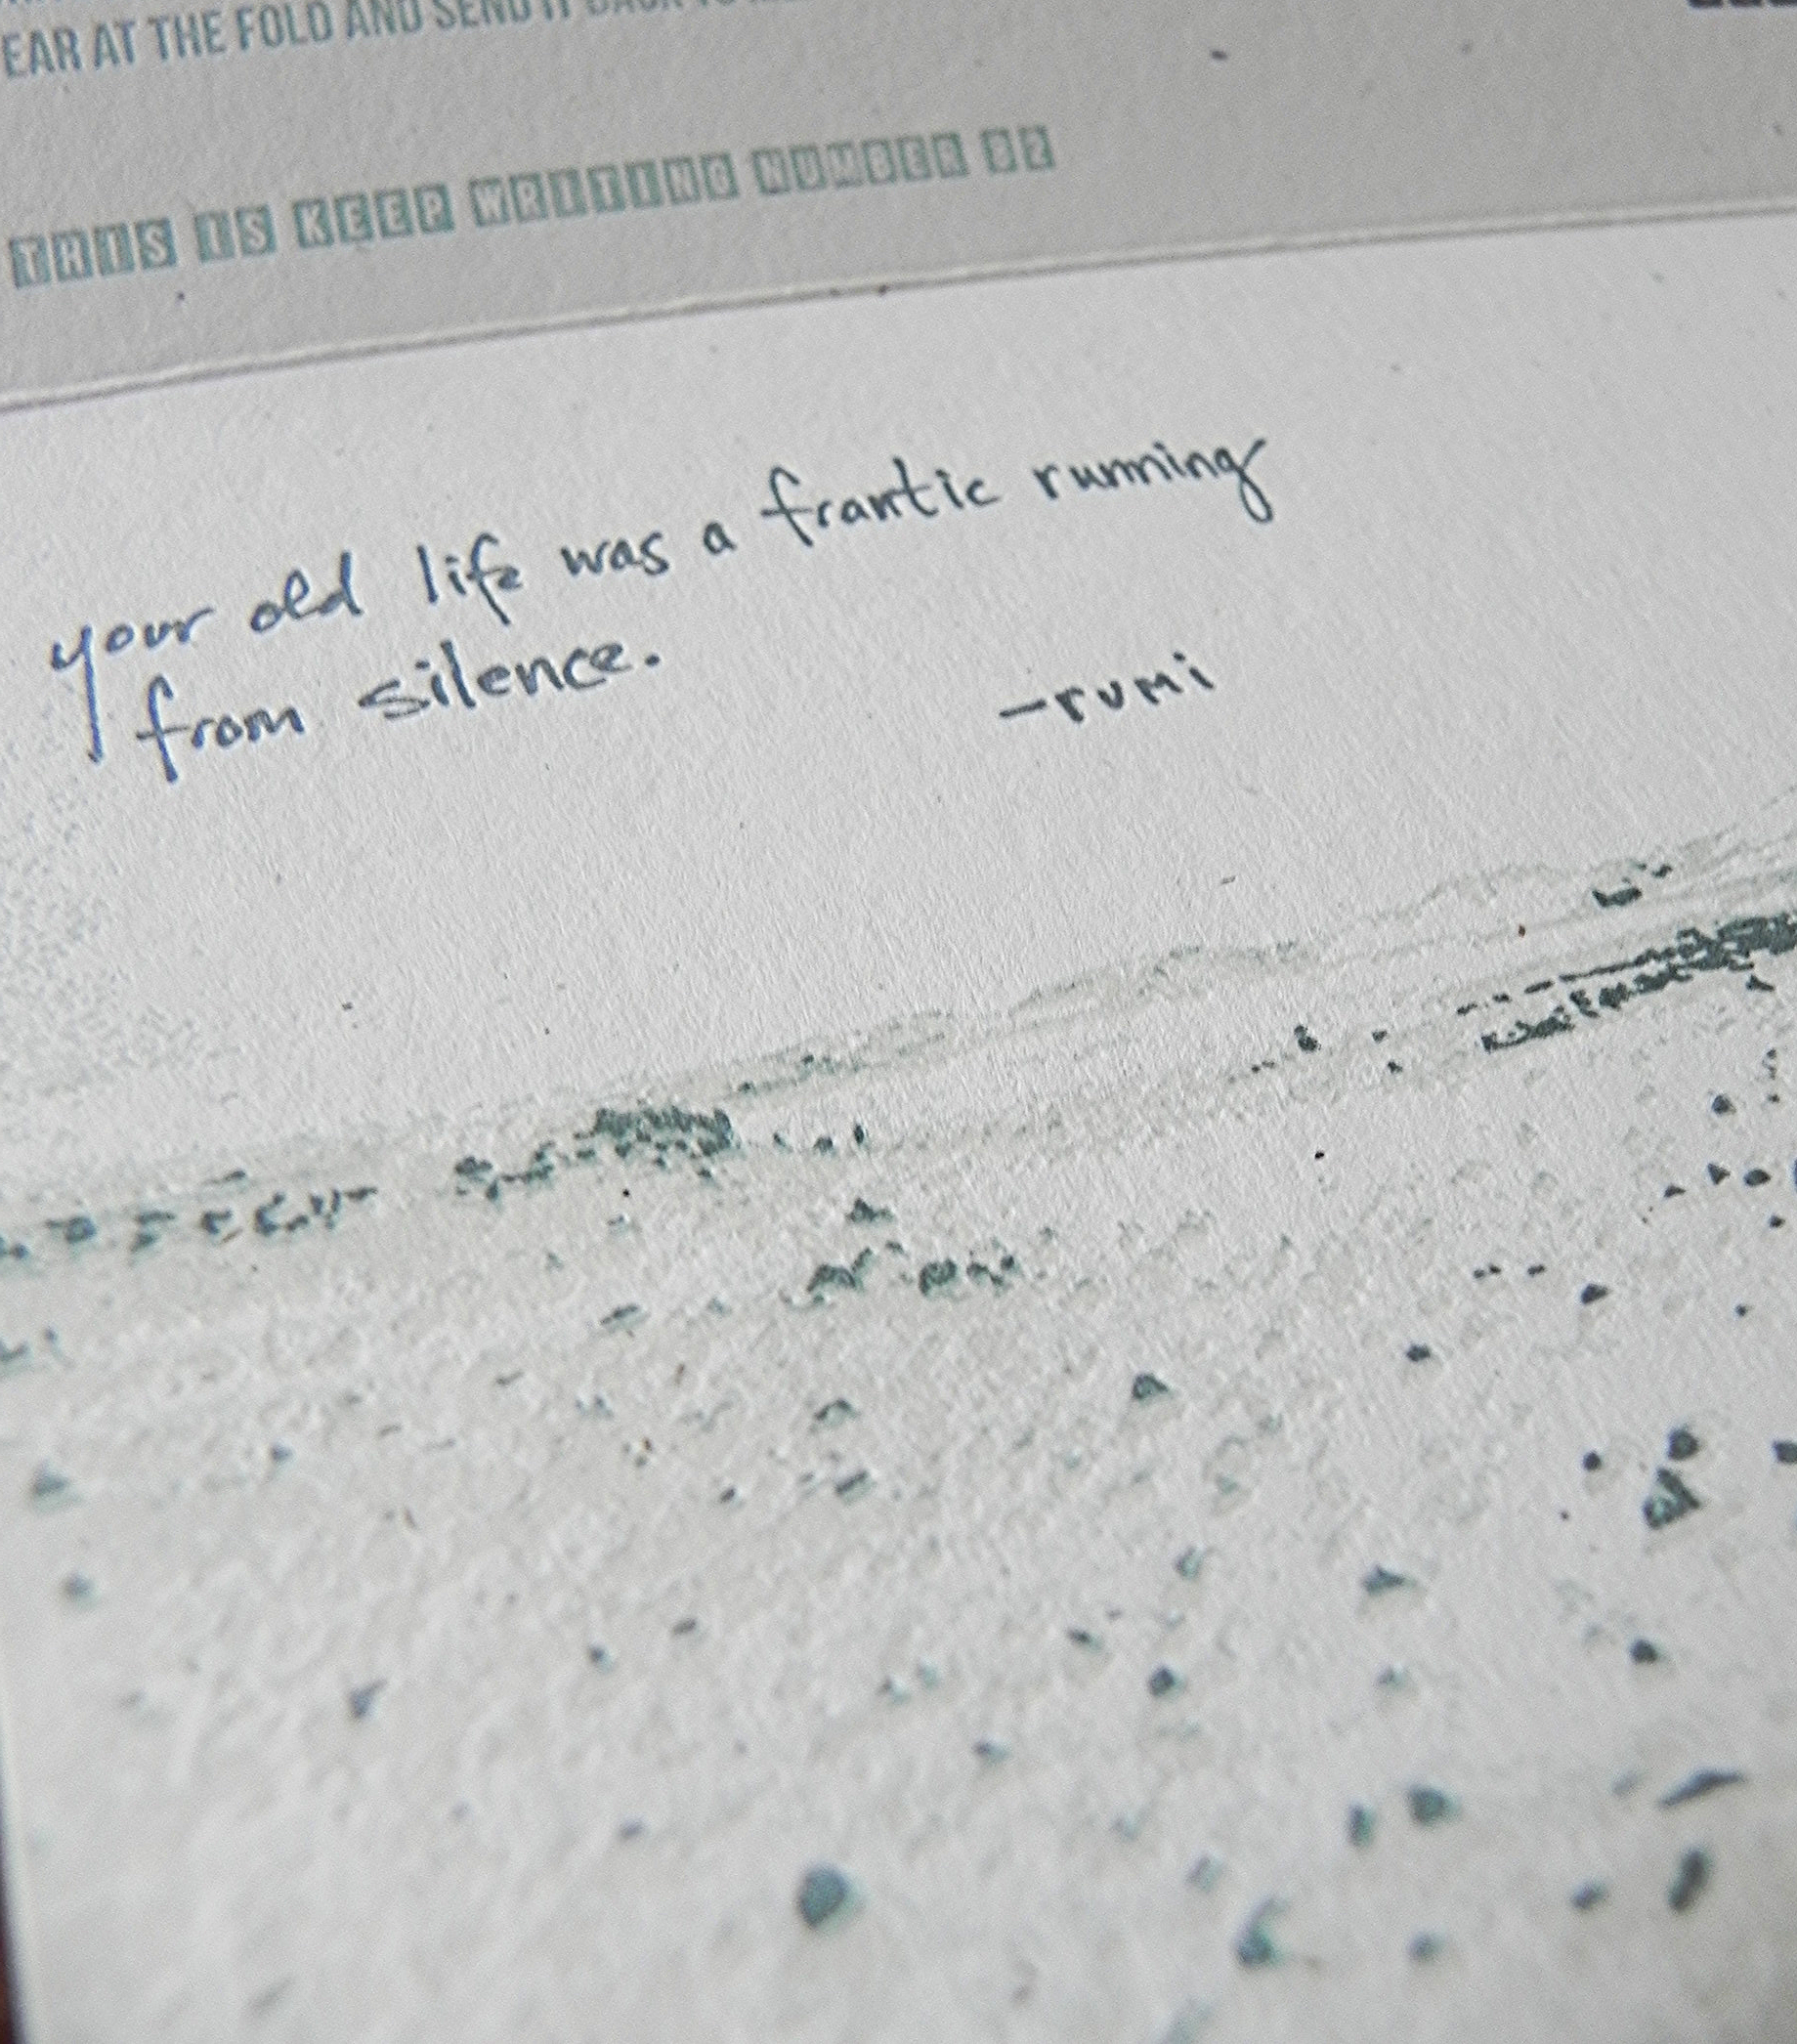 EAR AT THE FOLD AND SEND IT BACK TO
THIS IS KEEP WRITING NUMBER 82
your old life was a frantic running
from silence.
-rumi